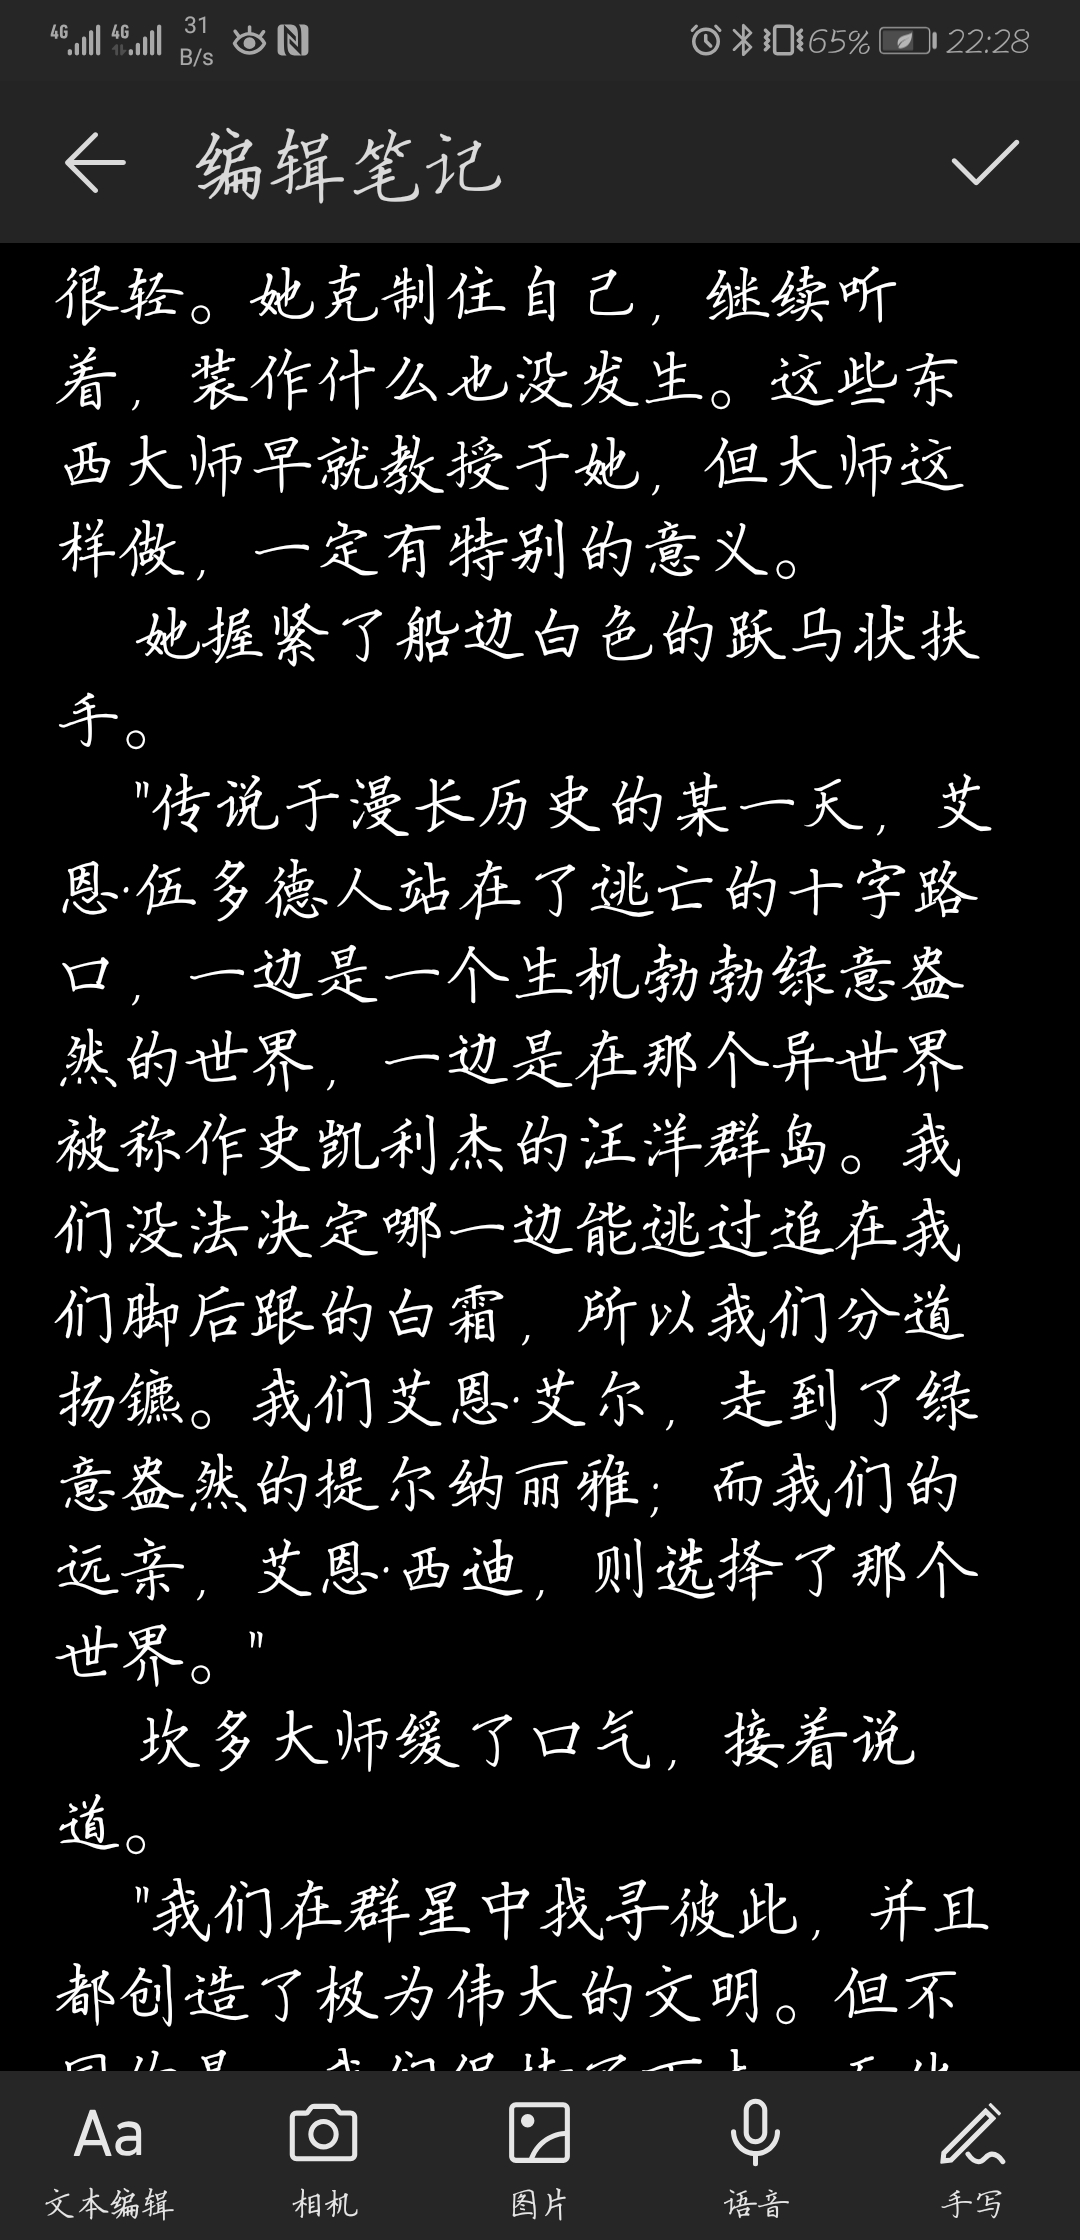 4G 4G 31 B/s 65% 22:28
编辑笔记
很轻。她克制住自己，继续听
着，装作什么也没发生。这些东
西大师早就教授于她，但大师这
样做，一定有特别的意义。
她握紧了船边白色的跃马状扶
手。
"传说于漫长历史的某一天，艾
恩·伍多德人站在了逃亡的十字路
口，一边是一个生机勃勃绿意盎
然的世界，一边是在那个异世界
被称作史凯利杰的汪洋群岛。我
们没法决定哪一边能逃过追在我
们脚后跟的白霜，所以我们分道
扬镳。我们艾恩·艾尔，走到了绿
意盎然的提尔纳丽雅；而我们的
远亲，艾恩·西迪，则选择了那个
世界。"
坎多大师缓了口气，接着说
道。
"我们在群星中找寻彼此，并且
都创造了极为伟大的文明。但不
Aa
文本编辑 相机 图片 语音 手写